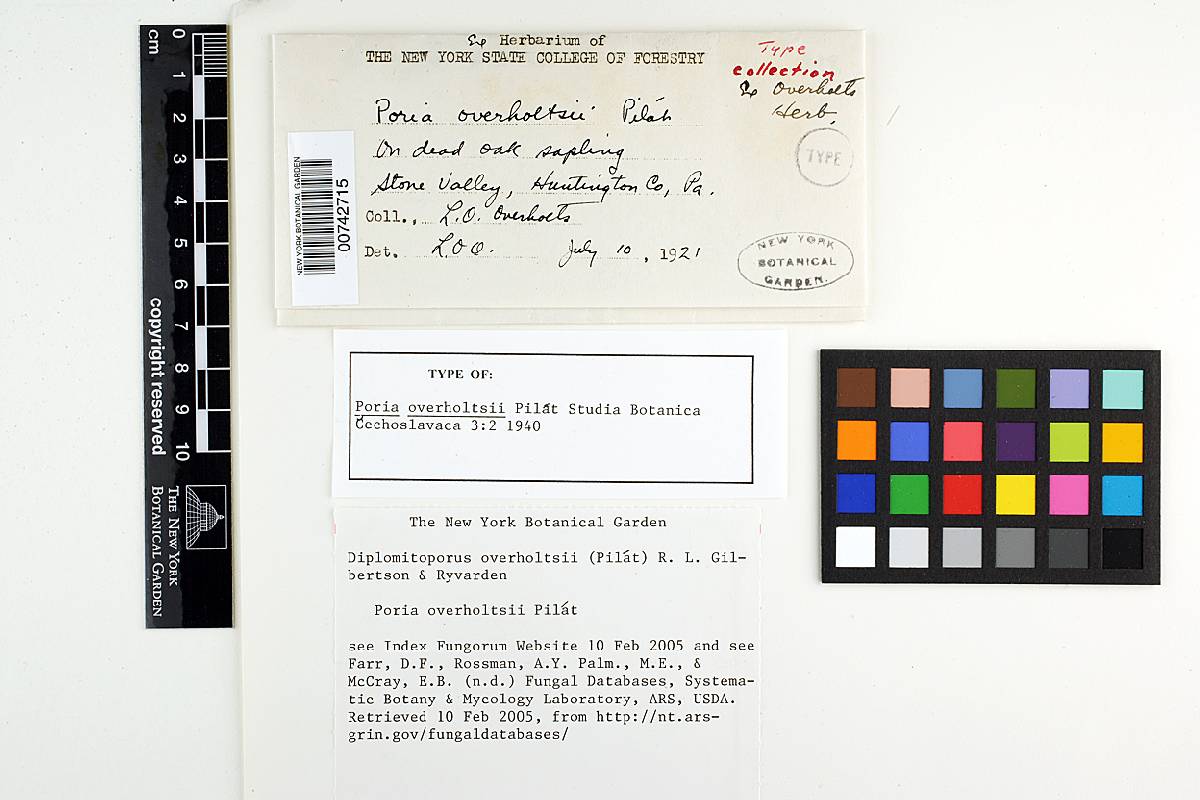 0
cm
1
2
3
4
5
6
7
8
9
10
copyright reserved
THE NEW YORK
BOTANICAL GARDEN
Ex Herbarium of
THE NEW YORK STATE COLLEGE OF FORESTRY
Type
collection
Ex Overholts
Herb.
TYPE
Poria overholtsii Pilát
On dead oak sapling
Stone Valley, Huntington Co, Pa.
Coll., L.O. Overholts
Det. L.O.O. July 10, 1921
NEW YORK
BOTANICAL
GARDEN.
NEW YORK BOTANICAL GARDEN
00742715
TYPE OF:
Poria overholtsii Pilát Studia Botanica
Čechoslavaca 3:2 1940
The New York Botanical Garden
Diplomitoporus overholtsii (Pilát) R. L. Gil-
bertson & Ryvarden
Poria overholtsii Pilát
see Index Fungorum Website 10 Feb 2005 and see
Farr, D.F., Rossman, A.Y. Palm., M.E., &
McCray, E.B. (n.d.) Fungal Databases, Systema-
tic Botany & Mycology Laboratory, ARS, USDA.
Retrieved 10 Feb 2005, from http://nt.ars-
grin.gov/fungaldatabases/